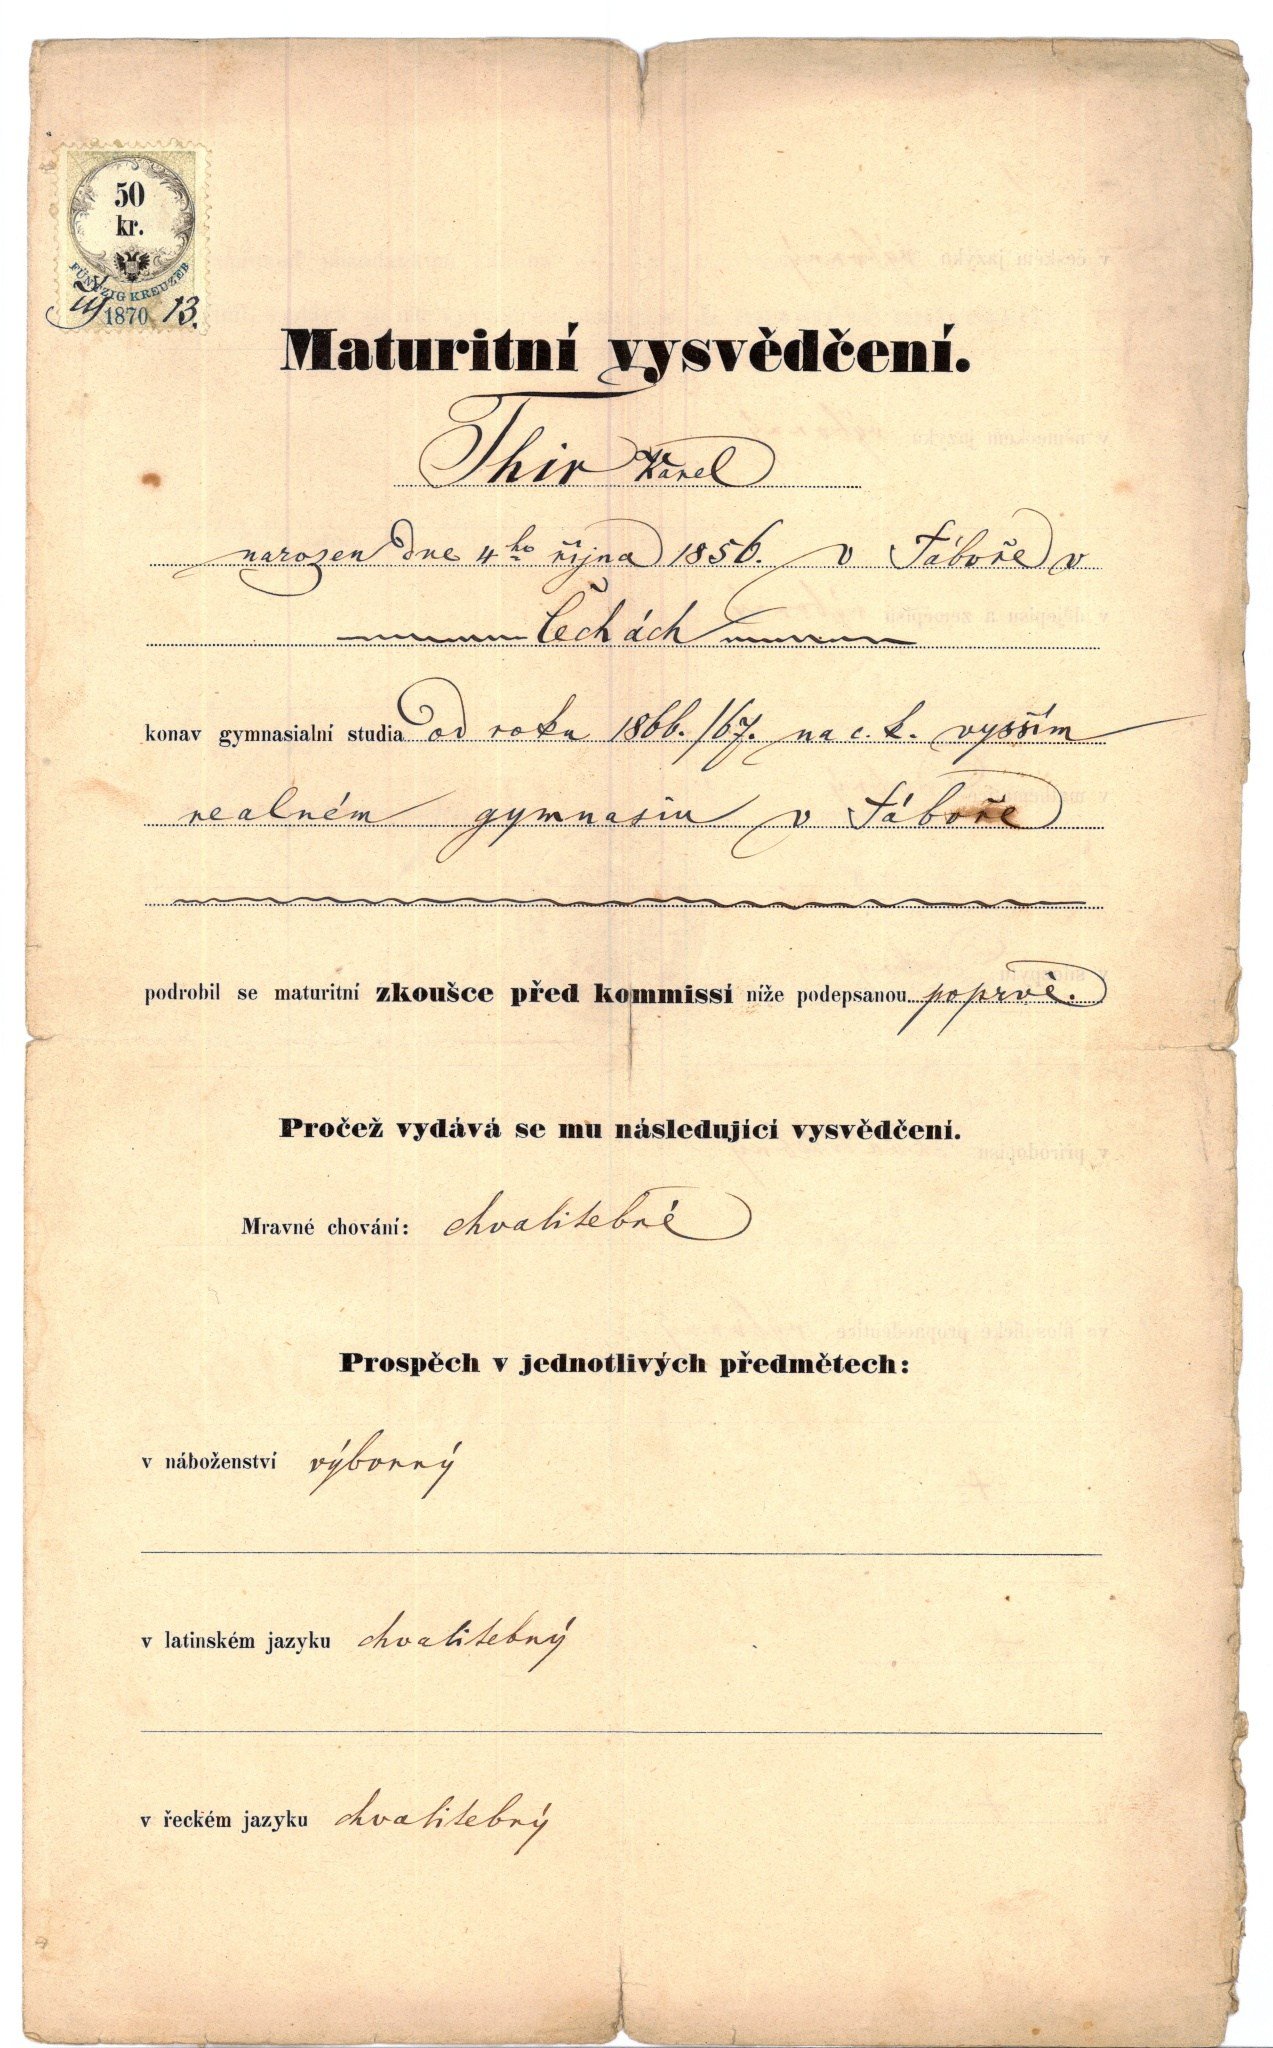 50
kr.
FÜNFZIG KREUZER
1870 13.
Maturitní vysvědčení.
Thir Karel
narozen dne 4ho října 1856. v Táboře v
Čechách
konav gymnasialní studia od roku 1866./67. na c. k. vyšším
realném gymnasiu v Táboře
podrobil se maturitní zkoušce před kommissí níže podepsanou poprvé.
Pročež vydává se mu následující vysvědčení.
Mravné chování: chvalitebné
Prospěch v jednotlivých předmětech:
v náboženství výborný
v latinském jazyku chvalitebný
v řeckém jazyku chvalitebný